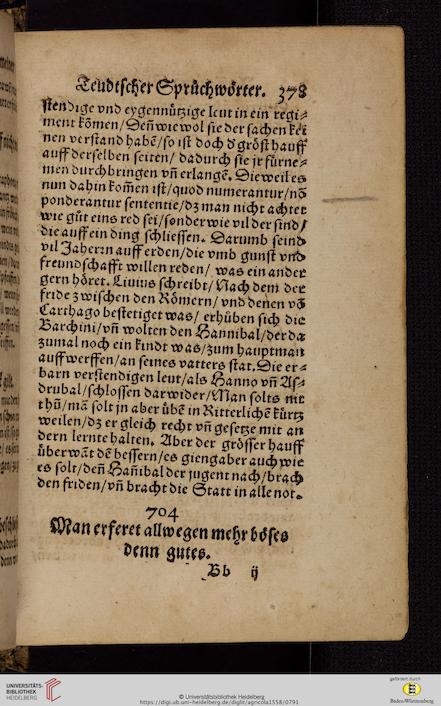 Teudtscher Sprüchwörter. 378
stendige vnd eygennützige leut in ein regi⸗
ment kõmen/Deñ wie wol sie der sachen kei
nen verstand habẽ/so ist doch d̕ gröst hauff
auff derselben seiten/dadurch sie jr fürne⸗
men durchbringen vñ erlangẽ. Die weil es
nun dahin kom̃en ist/quod numerantur/nõ
ponderantur sententie/dz man nicht achtet
wie gůt eins red sei/sonder wie vil der sind/
die auff ein ding schliessen. Darumb seind
vil Jaherrn auff erden/die vmb gunst vnd
freundschafft willen reden/was ein ander
gern höret. Liuius schreibt/Nach dem der
fride zwischen den Römern/vnd denen võ
Carthago bestetiget was/erhüben sich die
Barchini/vñ wolten den Hannibal/der da
zumal noch ein kindt was/zum hauptman
auffwerffen/an seines vatters stat. Die er⸗
barn verstendigen leut/als Hanno vñ As⸗
drubal/schlossen darwider/Man solts nit
thů/mã solt jn aber übẽ in Ritterlichẽ kürtz
weilen/dz er gleich recht vñ gesetze mit an
dern lernte halten. Aber der grösser hauff
überwãt dẽ bessern/es gieng aber auch wie
es solt/deñ Hañibal der jugent nach/brach
den friden/vñ bracht die Statt in alle not.
704
Man erferet allwegen mehr böses
denn gutes.
Bb ij
UNIVERSITÄTS-
BIBLIOTHEK
HEIDELBERG
© Universitätsbibliothek Heidelberg
https://digi.ub.uni-heidelberg.de/diglit/agricola1558/0791
gefördert durch
Baden-Württemberg